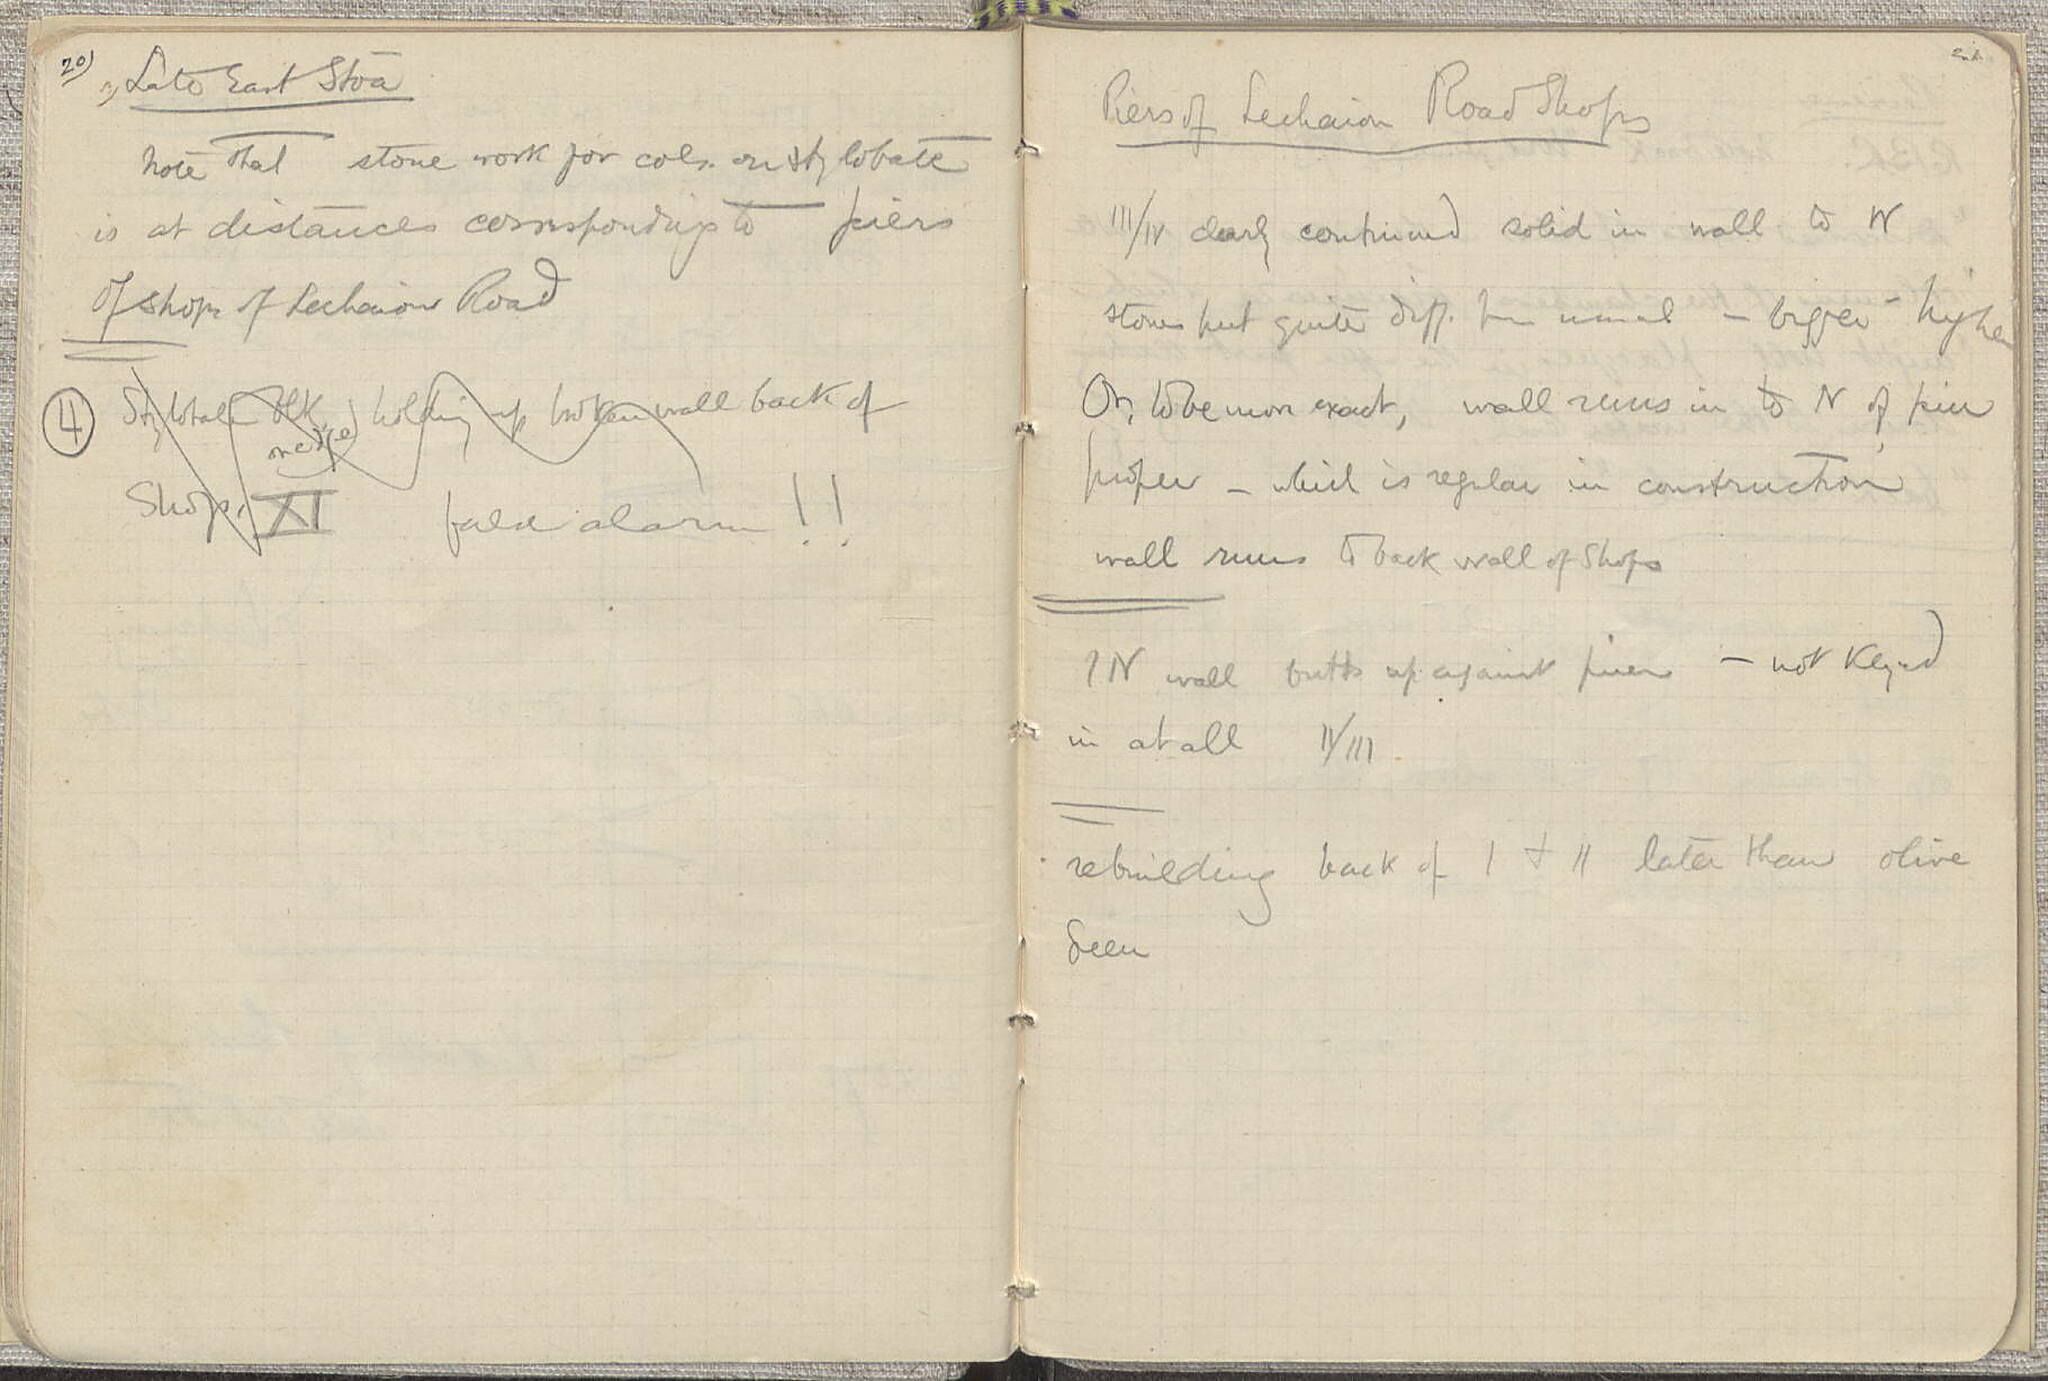 20)
3) Late East Stoa
Note that stone work for cols. on stylobate
is at distances corresponding to piers
of shops of Lechaion Road
4 Stylobate blk holding up broken wall back of
on edge
Shop XI false alarm!!
Piers of Lechaion Road Shops
III/IV clearly continued solid in wall to N
stones but quite diff. from usual – bigger – higher
Or, to be more exact, wall runs in to N of pier
proper – which is regular in construction
wall runs to back wall of Shops
? N wall butts up against pier – not keyed
in at all II/III.
rebuilding back of I + II later than olive